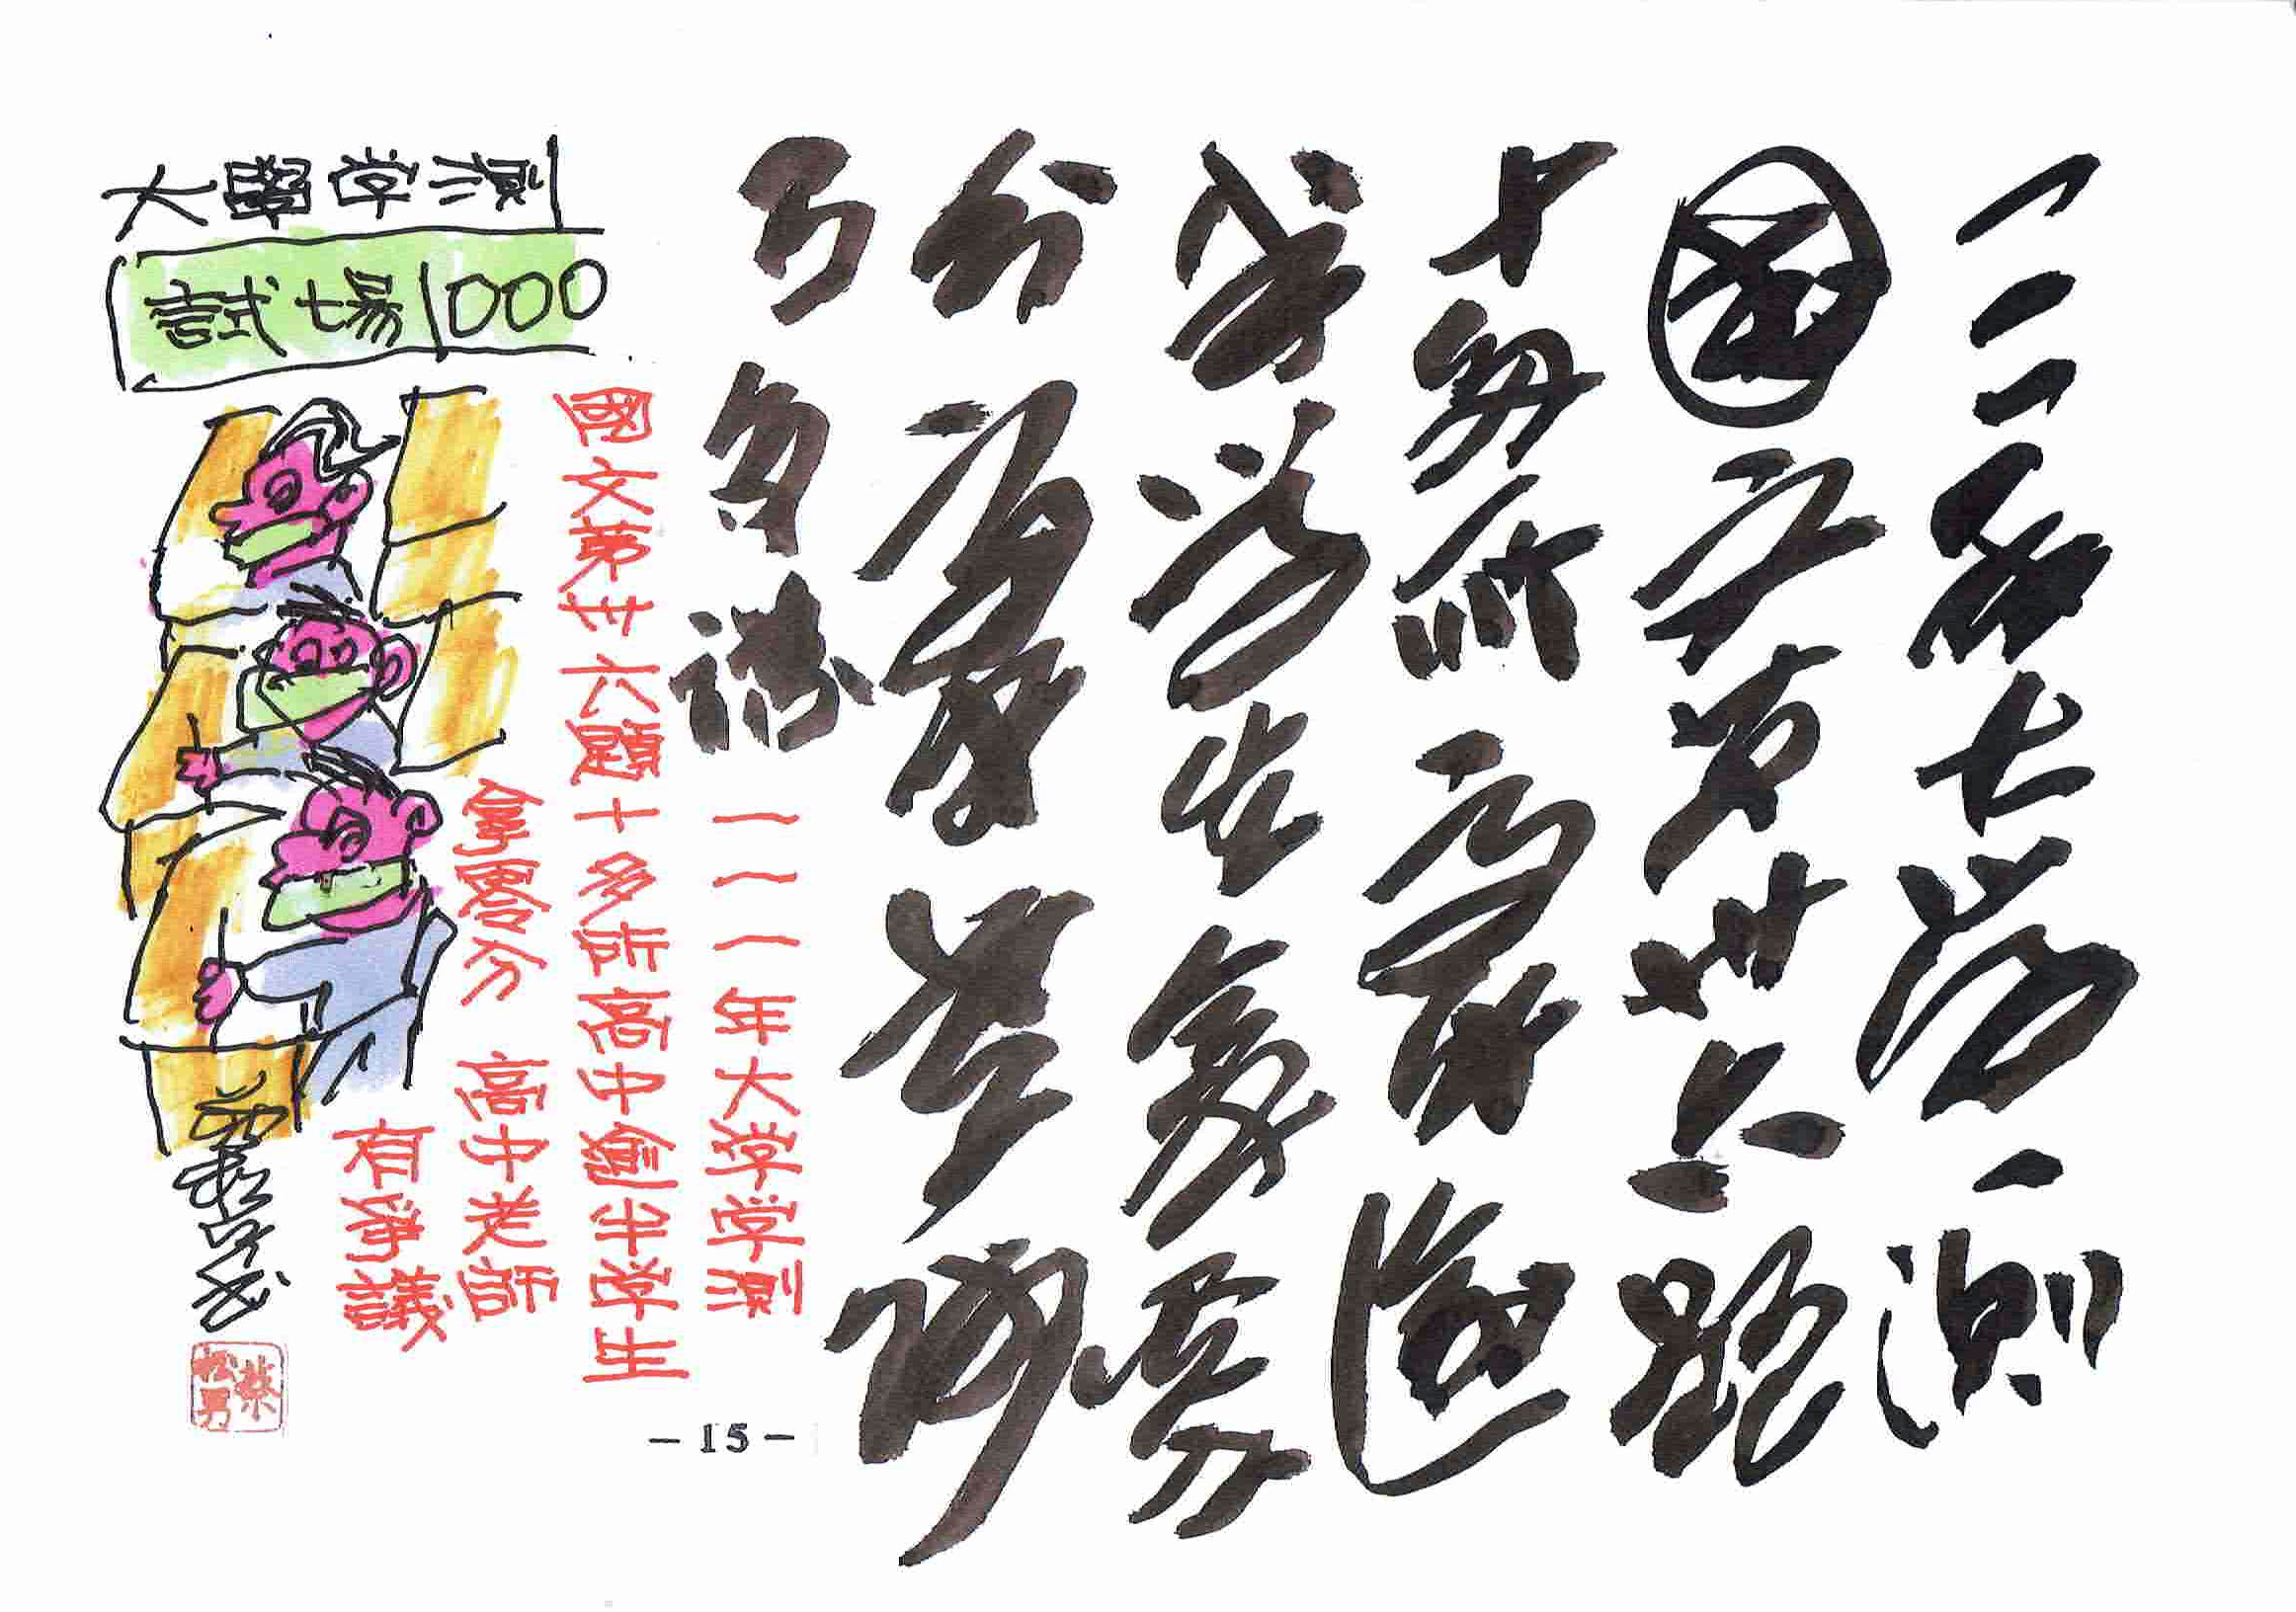 一一一年大学学測
國文第卅六題
十多所高中逾
半学生拿零
分高中老師
有爭議
大學学測
試場1000
一一一年大学学測
國文第卅六題十多所高中逾半学生
拿零分 高中老師
有爭議
蔡松男
- 15 -